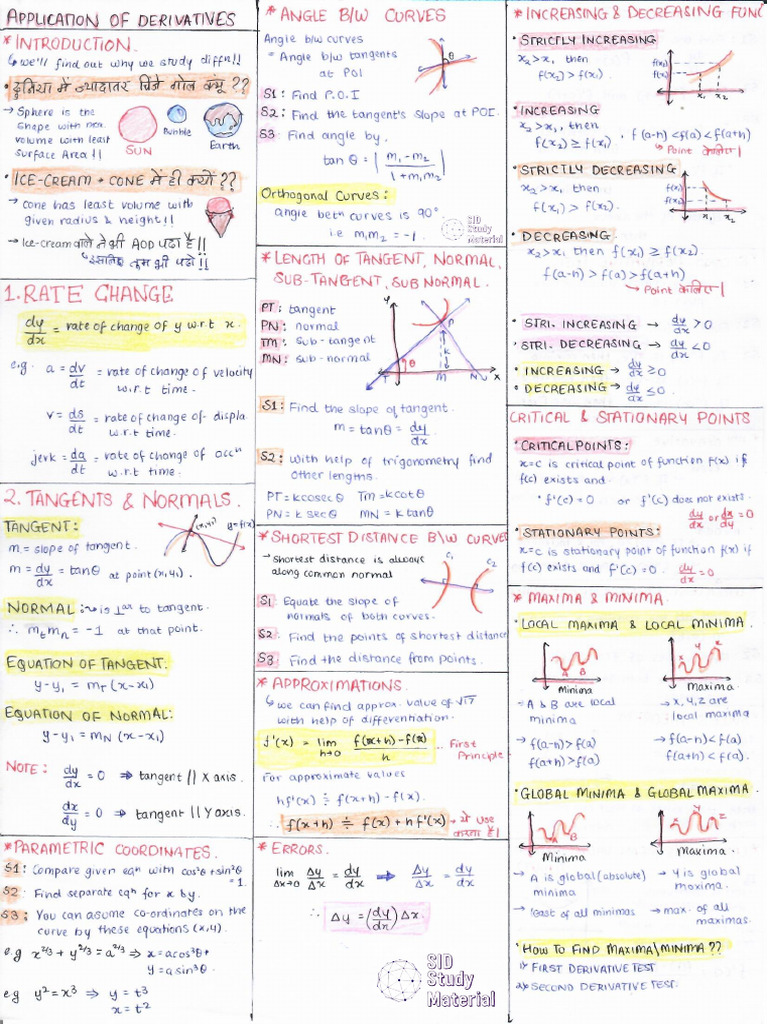 APPLICATION OF DERIVATIVES
* INTRODUCTION.
↳ we'll find out why we study diffn!!
• दुनिया में ज्यादातर चिजे गोल क्यूं ??
→ Sphere is the
shape with max
volume with least
Surface Area!!
SUN
Bubble
Earth
• ICE-CREAM + CONE में ही क्यों ??
→ cone has least volume with
given radius & height!!
→ Ice-cream वाले ने भी AOD पढा है!!
इसलिए तुम भी पढो!!
1. RATE CHANGE
dy/dx = rate of change of y w.r.t x.
e.g. a = dv/dt = rate of change of velocity
w.r.t time.
v = ds/dt = rate of change of displa
w.r.t time.
jerk = da/dt = rate of change of accn
w.r.t time.
2. TANGENTS & NORMALS.
TANGENT:
(x1,y1)
y=f(x)
m = slope of tangent.
m = dy/dx = tanθ at point (x1,y1).
NORMAL: ↳ is ⊥ar to tangent.
∴ mt mn = -1 at that point.
EQUATION OF TANGENT.
y-y1 = mT (x-x1)
EQUATION OF NORMAL:
y-y1 = mN (x-x1)
NOTE: dy/dx = 0 ⇒ tangent // X axis.
dx/dy = 0 ⇒ tangent // Y axis.
* PARAMETRIC COORDINATES.
S1: Compare given eqn with cos²θ+sin²θ
=1.
S2: Find separate eqn for x by.
S3: You can asume co-ordinates on the
curve by these equations (x,y).
e.g x^2/3 + y^2/3 = a^2/3 ⇒ x = acos³θ+
y = a sin³θ.
eg y² = x³ ⇒ y = t³
x = t²
* ANGLE B/W CURVES
Angle b/w curves
= Angle b/w tangents
at POI
θ
S1: Find P.O.I
S2: Find the tangent's slope at POI.
S3: Find angle by.
tan θ = | m1-m2 / 1+m1m2 |
Orthogonal Curves:
angle betn curves is 90°
i.e m1m2 = -1.
SID
Study
Material
* LENGTH OF TANGENT, NORMAL,
SUB-TANGENT, SUB NORMAL.
PT: tangent
PN: normal
TM: sub-tangent
MN: sub-normal
y
P
k
θ
T
M
N
x
S1: Find the slope of tangent.
m = tanθ = dy/dx
S2: With help of trigonometry find
other lengths.
PT = kcosec θ TM = kcot θ
PN = k sec θ MN = k tanθ
* SHORTEST DISTANCE B/W CURVES
→ Shortest distance is always
along common normal
C1
C2
S1 Equate the slope of
normals of both curves.
S2 Find the points of shortest distance
S3 Find the distance from points.
* APPROXIMATIONS.
↳ we can find approx. value of √17
with help of differentiation.
f'(x) = lim h→0 f(x+h)-f(x) / h … First
Principle
For approximate values
hf'(x) ≑ f(x+h) - f(x).
∴ f(x+h) ≑ f(x) + h f'(x) → ये use
करता है।
* ERRORS.
lim Δx→0 Δy/Δx = dy/dx ⇒ Δy/Δx = dy/dx
∴ Δy = (dy/dx) Δx.
SID
Study
Material
* INCREASING & DECREASING FUNC
• STRICTLY INCREASING
x2 > x1, then
f(x2) > f(x1).
f(x2)
f(x1)
x1 x2
• INCREASING
x2 > x1, then
f(x2) ≥ f(x1) . f(a-h)<f(a)<f(a+h)
↳ Point केलिए।
• STRICTLY DECREASING
x2 > x1, then
f(x1) > f(x2).
x1 x2
• DECREASING
x2 > x1 then f(x1) ≥ f(x2)
f(a-h) > f(a) > f(a+h)
↳ Point केलिए।
• STRI. INCREASING → dy/dx > 0
• STRI. DECREASING → dy/dx < 0
• INCREASING → dy/dx ≥ 0
• DECREASING → dy/dx ≤ 0.
CRITICAL & STATIONARY POINTS
• CRITICAL POINTS:
x=c is critical point of function f(x) if
f(c) exists and
• f'(c) = 0 or f'(c) does not exists.
dy/dx or dx/dy = 0
• STATIONARY POINTS:
x=c is stationary point of function f(x) if
f(c) exists and f'(c) = 0. dy/dx = 0
* MAXIMA & MINIMA.
• LOCAL MAXIMA & LOCAL MINIMA.
A B
Minima
x y z
Maxima.
= A & B are local
minima
→ x, y, z are
local maxima
→ f(a-h) > f(a)
f(a+h) > f(a)
→ f(a-h) < f(a)
f(a+h) < f(a).
• GLOBAL MINIMA & GLOBAL MAXIMA.
A B
Minima
Y
Maxima.
→ A is global (absolute)
minima
→ Y is global
maxima.
→ least of all minimas
→ max. of all
maximas.
• HOW TO FIND MAXIMA\MINIMA ??
1) FIRST DERIVATIVE TEST
2) SECOND DERIVATIVE TEST.